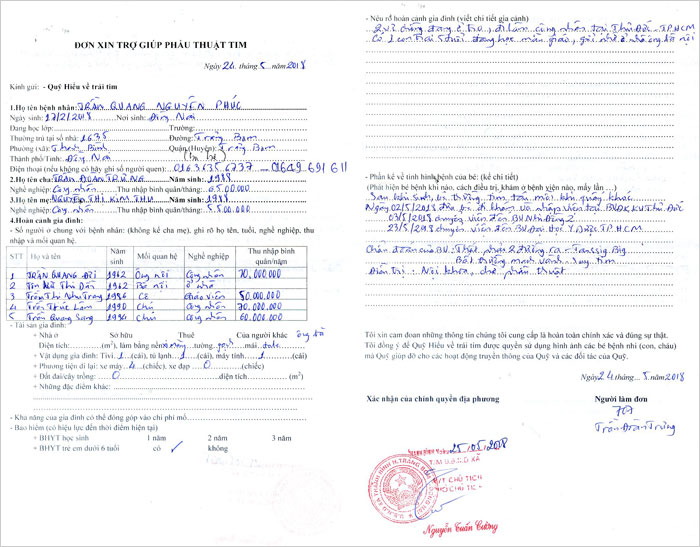 ĐƠN XIN TRỢ GIÚP PHẪU THUẬT TIM
Ngày 24 tháng 5 năm 2018
Kính gửi: - Quỹ Hiểu về trái tim
1.Họ tên bệnh nhân: TRẦN QUANG NGUYÊN PHÚC
Ngày sinh: 17/2/2018 Nơi sinh: Đồng Nai
Đang học lớp: Trường:
Thường trú tại số nhà: 1635 Đường: Trảng Bom
Phường (xã): Thanh Bình Quận (Huyện): Trảng Bom
Thành phố/Tỉnh: Đồng Nai
Điện thoại (nếu không có hãy ghi số người quen): 0163 635 6737 - 01649 691 611
2.Họ tên cha: TRẦN ĐOÀN TRƯỞNG Năm sinh: 1988
Nghề nghiệp: Công nhân Thu nhập bình quân/tháng: 6.500.000
3.Họ tên mẹ: NGUYỄN THỊ KIM THU Năm sinh: 1988
Nghề nghiệp: Công nhân Thu nhập bình quân/tháng: 5.500.000
4.Hoàn cảnh gia đình:
- Số người ở chung với bệnh nhân: (không kể cha mẹ), ghi rõ họ tên, tuổi, nghề nghiệp, thu
nhập và mối quan hệ
STT Họ và tên Năm sinh Mối quan hệ Nghề nghiệp Thu nhập bình quân/năm
1 TRẦN QUANG 1962 Ông nội Công nhân 70.000.000
2 Thị 1962 Bà nội ở nhà
3 Trần Thị Như Trang 1986 Cô Giáo viên 50.000.000
4 Trần Trúc Lâm 1990 Chú Công nhân 70.000.000
5 Trần Quang Sang Chú Công nhân 60.000.000
- Tài sản gia đình:
+ Nhà ở Sở hữu Thuê Của người khác ông bà
Diện tích: (m²), làm bằng nền xi măng tường gạch mái
+ Vật dụng gia đình: Tivi 1 (cái), tủ lạnh 1 (cái), máy tính 1 (cái)
+ Phương tiện đi lại: xe máy 4 (chiếc), xe đạp 0 (chiếc)
+ Đất đai/cây trồng: 0 diện tích (m²)
+ Những đặc điểm khác:
- Khả năng của gia đình có thể đóng góp vào chi phí mổ
- Bảo hiểm (có hiệu lực đến thời điểm hiện tại)
+ BHYT học sinh 1 năm 2 năm 3 năm
+ BHYT trẻ em dưới 6 tuổi có ✓ không
- Nêu rõ hoàn cảnh gia đình (viết chi tiết gia cảnh)
2 vợ chồng đang ở trọ, đi làm công nhân tại Thủ Đức - TP.HCM
Có 1 con trai 5 tuổi đang học mẫu giáo, gửi nhờ ở nhà ông bà nội
- Phần kể về tình hình bệnh của bé: (kể chi tiết)
(Phát hiện bệnh khi nào, cách điều trị, khám ở bệnh viện nào, mấy lần ...)
Sau khi sinh, bị thường tím tái mỗi khi quấy khóc
Ngày 02/5/2018 đưa bé đi khám và nhập viện tại BVĐK KV Thủ Đức
03/5/2018 chuyển viện đến BV Nhi Đồng 2
23/5/2018 chuyển viện đến BV Đại học Y Dược TP.HCM
Chẩn đoán của BV: Thất phải 2 đường ra - Taussig Bing
Bất thường mạch vành - Suy tim
Điều trị: Nội khoa, chờ phẫu thuật
Tôi xin cam đoan những thông tin chúng tôi cung cấp là hoàn toàn chính xác và đúng sự thật.
Tôi đồng ý để Quỹ Hiểu về trái tim được quyền sử dụng hình ảnh các bé bệnh nhi (con, cháu)
mà Quỹ giúp đỡ cho các hoạt động truyền thông của Quỹ và các đối tác của Quỹ.
Ngày 24 tháng 5 năm 2018
Xác nhận của chính quyền địa phương Người làm đơn
Trần Đoàn Trưởng
25/05/2018
T.M U.B.N.D XÃ
CHỦ TỊCH
Nguyễn Tuấn Cường